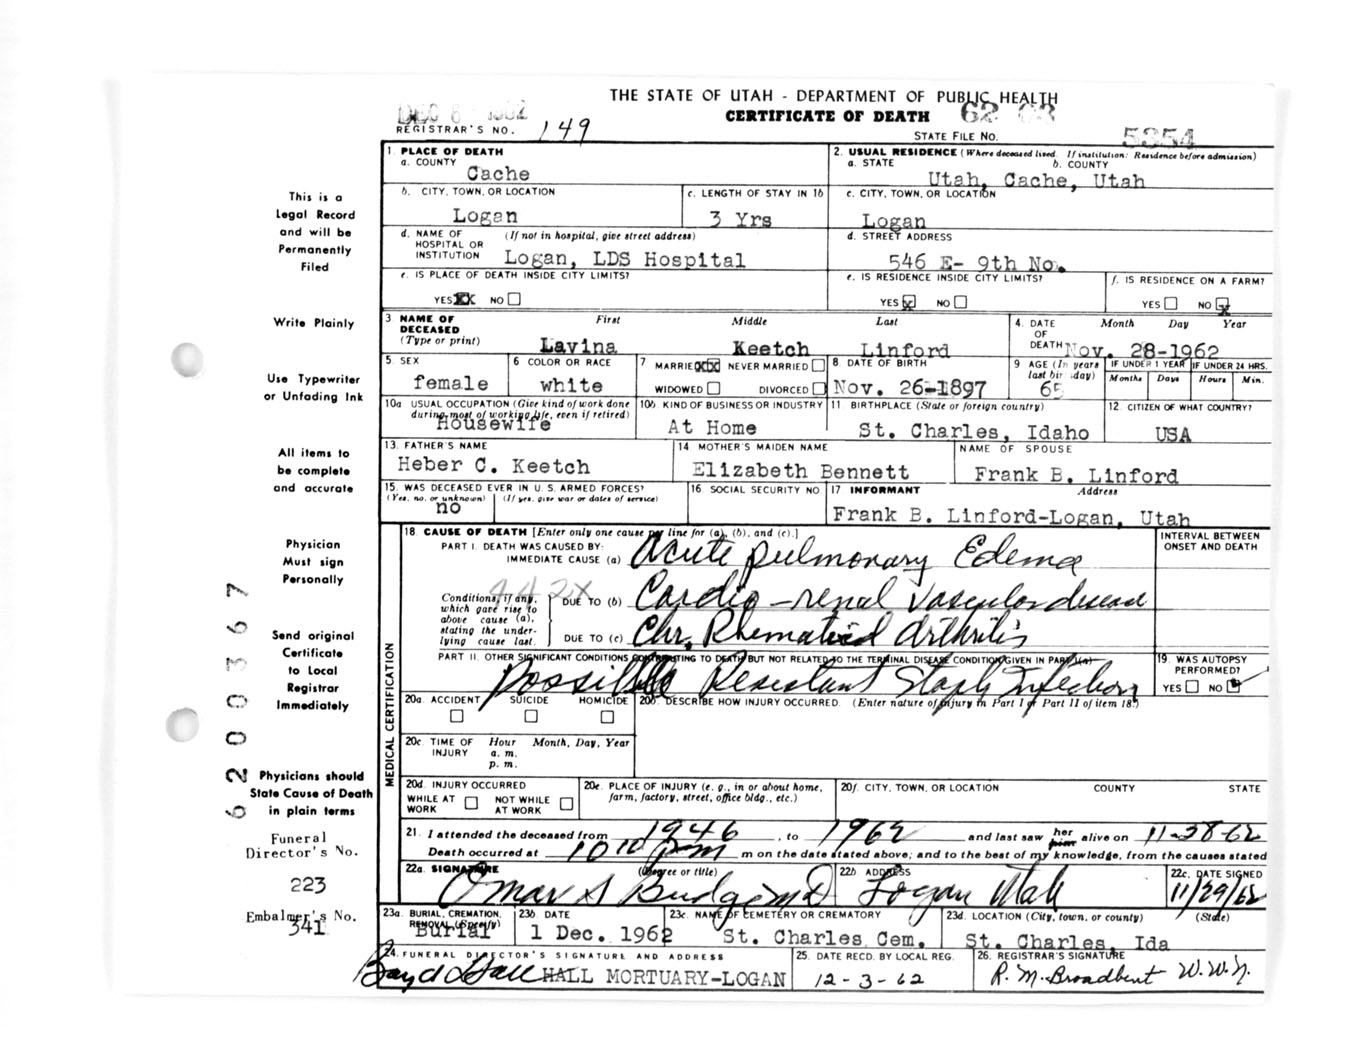 THE STATE OF UTAH - DEPARTMENT OF PUBLIC HEALTH
DEC 6 1962
CERTIFICATE OF DEATH 62 03
REGISTRAR'S NO. 149
STATE FILE NO. 5354
1. PLACE OF DEATH
a. COUNTY
Cache
2. USUAL RESIDENCE (Where deceased lived. If institution: Residence before admission)
a. STATE b. COUNTY
Utah, Cache, Utah
b. CITY, TOWN, OR LOCATION
Logan
c. LENGTH OF STAY IN 1b
3 Yrs
c. CITY, TOWN, OR LOCATION
Logan
d. NAME OF HOSPITAL OR INSTITUTION (If not in hospital, give street address)
Logan, LDS Hospital
d. STREET ADDRESS
546 E- 9th No.
e. IS PLACE OF DEATH INSIDE CITY LIMITS?
YES XX NO
e. IS RESIDENCE INSIDE CITY LIMITS?
YES X NO
f. IS RESIDENCE ON A FARM?
YES NO X
3 NAME OF DECEASED (Type or print)
First Middle Last
Lavina Keetch Linford
4. DATE OF DEATH Month Day Year
Nov. 28-1962
5. SEX
female
6 COLOR OR RACE
white
7 MARRIED XX NEVER MARRIED
WIDOWED DIVORCED
8 DATE OF BIRTH
Nov. 26-1897
9 AGE (In years last birthday)
65
IF UNDER 1 YEAR IF UNDER 24 HRS.
Months Days Hours Min.
10a USUAL OCCUPATION (Give kind of work done during most of working life, even if retired)
Housewife
10b KIND OF BUSINESS OR INDUSTRY
At Home
11 BIRTHPLACE (State or foreign country)
St. Charles, Idaho
12. CITIZEN OF WHAT COUNTRY?
USA
13. FATHER'S NAME
Heber C. Keetch
14 MOTHER'S MAIDEN NAME
Elizabeth Bennett
NAME OF SPOUSE
Frank B. Linford
15. WAS DECEASED EVER IN U. S. ARMED FORCES?
(Yes, no, or unknown) (If yes, give war or dates of service)
no
16 SOCIAL SECURITY NO
17 INFORMANT Address
Frank B. Linford-Logan, Utah
18. CAUSE OF DEATH [Enter only one cause per line for (a), (b), and (c).]
INTERVAL BETWEEN ONSET AND DEATH
PART I. DEATH WAS CAUSED BY:
IMMEDIATE CAUSE (a) Acute pulmonary Edema
442X
Conditions, if any, which gave rise to above cause (a), stating the underlying cause last.
DUE TO (b) Cardio-renal vascular disease
DUE TO (c) Chr. Rhematoid Arthritis
PART II. OTHER SIGNIFICANT CONDITIONS CONTRIBUTING TO DEATH BUT NOT RELATED TO THE TERMINAL DISEASE CONDITION GIVEN IN PART I(a)
Possible Resistant Staph Infection
19. WAS AUTOPSY PERFORMED?
YES NO
MEDICAL CERTIFICATION
20a. ACCIDENT SUICIDE HOMICIDE
20b. DESCRIBE HOW INJURY OCCURRED. (Enter nature of injury in Part I or Part II of item 18.)
20c. TIME OF INJURY Hour Month, Day, Year
a. m.
p. m.
20d. INJURY OCCURRED
WHILE AT WORK NOT WHILE AT WORK
20e. PLACE OF INJURY (e. g., in or about home, farm, factory, street, office bldg., etc.)
20f. CITY, TOWN, OR LOCATION COUNTY STATE
21. I attended the deceased from 1946, to 1962 and last saw her him alive on 11-28-62
Death occurred at 10 10 pm m on the date stated above; and to the best of my knowledge, from the causes stated
22a. SIGNATURE (Degree or title)
Omar S Budge MD
22b ADDRESS
Logan Utah
22c. DATE SIGNED
11/29/62
23a. BURIAL, CREMATION, REMOVAL (Specify)
Burial
23b. DATE
1 Dec. 1962
23c. NAME OF CEMETERY OR CREMATORY
St. Charles Cem.
23d. LOCATION (City, town, or county) (State)
St. Charles, Ida
24. FUNERAL DIRECTOR'S SIGNATURE AND ADDRESS
Hall HALL MORTUARY-LOGAN
25. DATE RECD. BY LOCAL REG.
12-3-62
26. REGISTRAR'S SIGNATURE
R. M. Broadbent W.W.N.
This is a
Legal Record
and will be
Permanently
Filed
Write Plainly
Use Typewriter
or Unfading Ink
All items to
be complete
and accurate
Physician
Must sign
Personally
Send original
Certificate
to Local
Registrar
Immediately
Physicians should
State Cause of Death
in plain terms
Funeral
Director's No.
223
Embalmer's No.
341
6200367